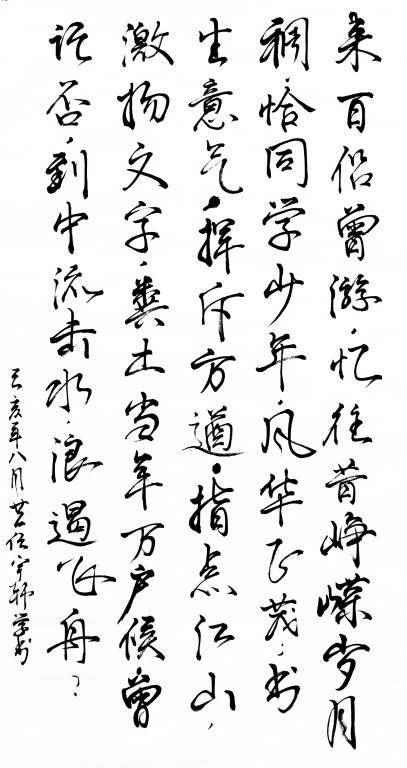 来百侣曾游，忆往昔峥嵘岁月
稠，恰同学少年，风华正茂，书
生意气，挥斥方遒，指点江山，
激扬文字，粪土当年万户候，曾
记否，到中流击水，浪遏飞舟？
己亥年八月任宇轩学书